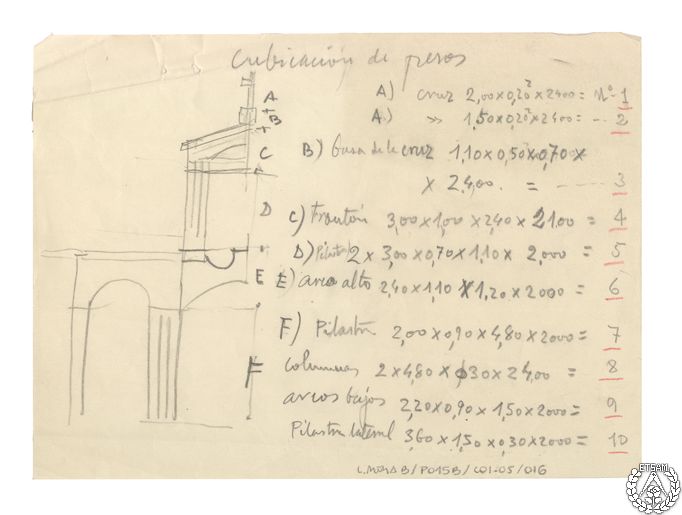 Cubicación de pesos
A
+
B
+
C
D
E
F
A) Cruz 2,00x0,20²x2400= Nº 1
A) » 1,50x0,20²x2400= -- 2
B) basa de la cruz 1,10x0,50x0,70x
x 2.400. = ---- 3
C) Frontón 3,00x1,00x2,40x2100= 4
D) Pilastra 2x3,00x0,70x1,10x 2,000 = 5
E) arco alto 2,40x1,10x1,20x2000= 6
F) Pilastra 2,00x0,90x4,80x2000= 7
columnas 2x4,80xϕ30x24,00 = 8
arcos bajos 2,20x0,90x1,50x2000= 9
Pilastra lateral 3,60x1,50x0,30x2000= 10
L.MOYA B/P015B/C01-05/016
ETSAM